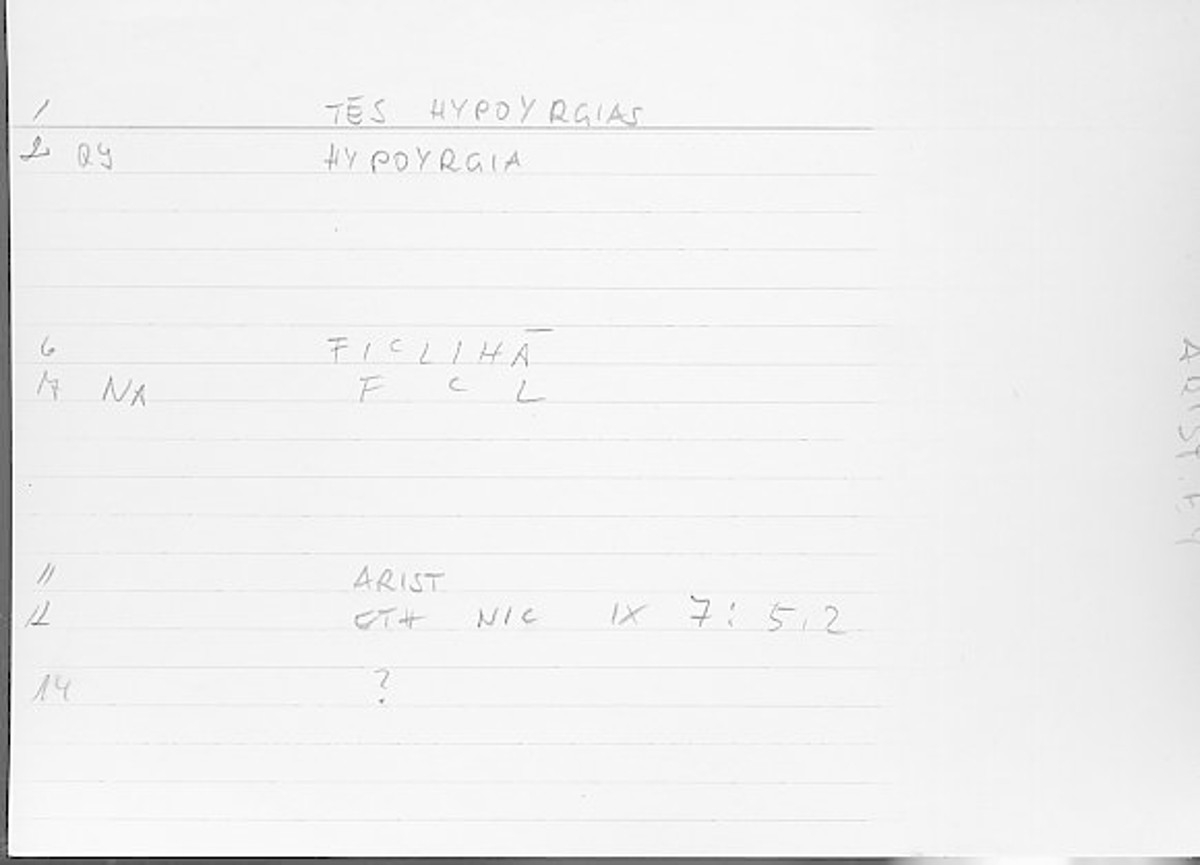 1 TES HYPOYRGIAS
2 QY HYPOYRGIA
6 FICLIHĀ
17 NA F C L
11 ARIST
12 ETH NIC IX 7: 5.2
14 ?
ARIST.